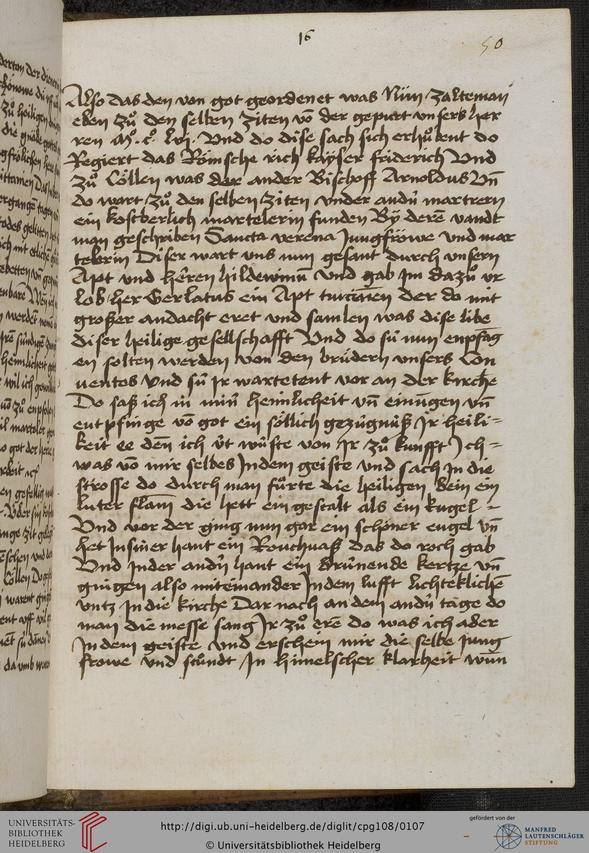 16
50
Also das den von got geordenet was Nun zaltеman
eben zů den selben ziten võ der gepurt vnsers her
ren Mº.cº lvi. Vnd do dise sach sich erhůbent do
Regiert das Römsche rich kayser friderich Vnd
zů Cöllen was der ander Bischoff Arnoldus Vñ
do wart zů den selben ziten vnder andñ martrern
ein kostberlich martelerin funden By derē vandt
man geschriben Sancta verena Jungfröwe vnd mar
telerin Diser wart vns nun gesant durch vnsern
Apt vnd hēren hildewinū Vnd gab jm dazů vr
lob her Gerlatus ein Apt der do mit
grosser andacht eret vnd samlen was dise libe
diser heilige gesellschafft Vnd do sú nun enpfāg
en solten werden von den brúdern vnsers Con
uentos Vnd sú jr wartetent vor an der kirche
Do saß ich in minr heimlicheit vñ einúgen vñ
entpfinge võ got ein söllich gezúgnúß Jr heili-
keit ee den ich út wúste von Jr zů kunfft Ich
was võ mir selbes Indem geiste vnd sach In die
strosse do durch man fúrte die heiligen bein ein
luter flam die hett ein gestalt als ein kugel
Vnd vor der ging nun gar ein schöner engel vñ
het Insiner hant ein Rouchvass das do roch gab
Vnd Inder andñ hant ein brúnende kertze vñ
gingen also miteinander Indem lufft lichteklichē
vntz In die kirche Dar nach an dem andñ tage do
man die messe sang Jr zů ere do was ich aber
Indem geiste vnd erschein mir die selbe Jung
frowe vnd stúndt In himelscher klarheit wun
UNIVERSITÄTS-
BIBLIOTHEK
HEIDELBERG
http://digi.ub.uni-heidelberg.de/diglit/cpg108/0107
© Universitätsbibliothek Heidelberg
gefördert von der
MANFRED
LAUTENSCHLÄGER
STIFTUNG